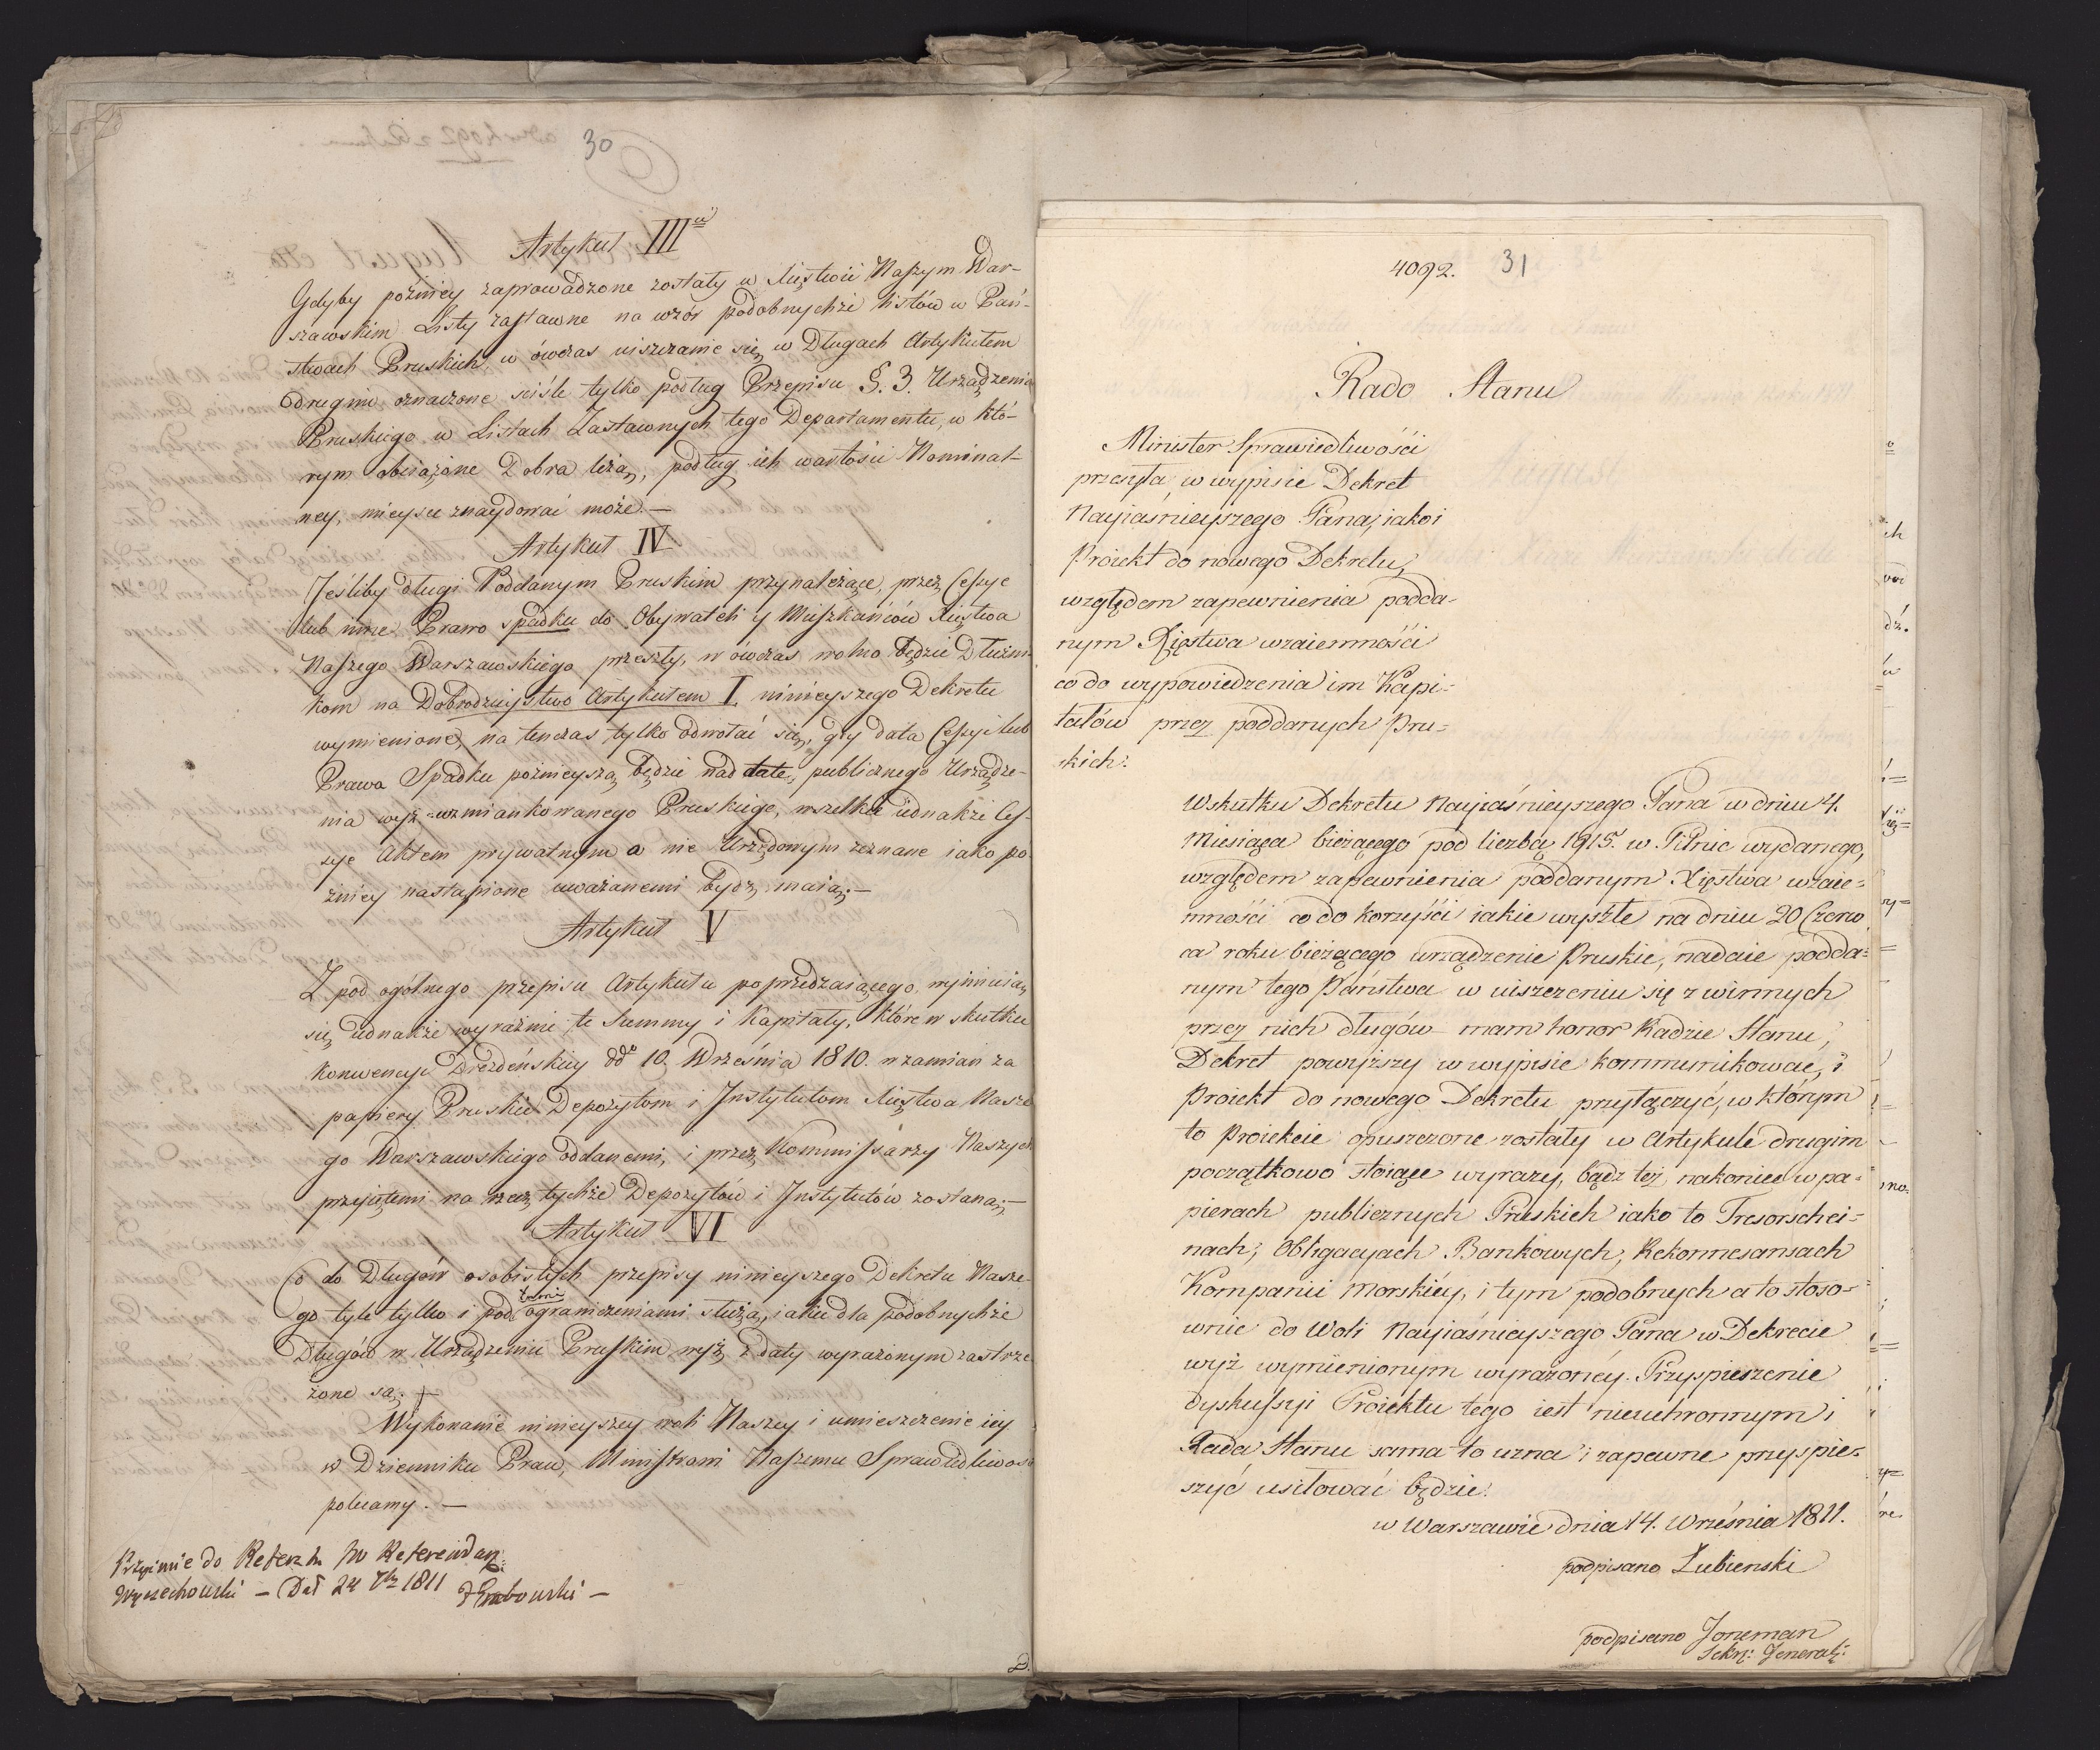 30
Artykuł III
Gdyby poźniey zaprowadzone zostały w Xięstwie Naszym War-
szawskim Listy zastawne na wzór podobnychże listów w Pań-
stwach Pruskich, w ówczas uiszczanie się w Długach Artykułem
drugim oznaczone ściśle tylko podług Przepisu §. 3. Urządzenia
Pruskiego w Listach Zastawnych tego Departamentu, w któ-
rym obciążone Dobra leżą, podług ich wartości Nominal-
ney, mieysce znaydować może. —
Artykuł IV
Jeśliby długi Poddanym Pruskim przynależące, przez Cessye
lub inne Prawo spadku do Obywateli y Mieszkańców Xięstwa
Naszego Warszawskiego przeszły, w ówczas wolno będzie Dłużni-
kom na Dobrodzieystwo Artykułem I. ninieyszego Dekretu
wymienione, na tenczas tylko odwołać się, gdy data Cessyi lub
Prawa Spadku poźnieyszą będzie nad datę, publicznego Urządze-
nia wyż wzmiankowanego Pruskiego, wszelkie iednakże Ces-
sye Aktem prywatnym a nie Urzędowym zeznane iako po-
źniey nastąpione uważanemi bydź maią. —
Artykuł V
Z pod ogólnego przepisu Artykułu poprzedzaiącego wyimuią
się iednakże wyraźnie te Summy i Kapitały, które w skutku
Konwencyi Drezdeńskiey dd° 10. Września 1810. w zamian za
papiery Pruskie Depozytom i Instytutom Xięstwa Nasze-
go Warszawskiego oddanemi, i przez Kommissarzy Naszych
przyiętemi na rzecz tychże Depozytów i Instytutów zostaną. —
Artykuł VI
Co do Długów osobistych przepisy ninieyszego Dekretu Nasze-
go tyle tylko i pod temi ograniczeniami służą, iakie dla podobnychże
Długów w Urządzeniu Pruskim wyż z daty wyrażonym zastrze-
żone są. —
Wykonanie ninieyszey woli Naszey i umieszczenie iey
w Dzienniku Praw, Ministrowi Naszemu Sprawiedliwości
polecamy. —
Przyimie do Refera tu JW Referendarz
Wyczechowski — Dat 24 7br 1811 Grabowski —
4092. 31
Rado Stanu
Minister Sprawiedliwości
przesyła w wypisie Dekret
Nayiaśnieyszego Pana, iako i
Proiekt do nowego Dekretu,
względem zapewnienia podda-
nym Xięstwa wzaiemności
co do wypowiedzenia im Kapi-
tałów przez poddanych Pru-
skich.
Wskutku Dekretu Nayiaśnieyszego Pana w dniu 4.
Miesiąca bieżącego pod liczbą 1915. w Pilnic wydanego,
względem zapewnienia poddanym Xięstwa wzaie-
mności co do korzyści iakie wyszłe na dniu 20 Czerw
ca roku bieżącego urządzenie Pruskie, nadaie podda-
nym tego Państwa w uiszczeniu się z winnych
przez nich długów mam honor Radzie Stanu,
Dekret powyższy w wypisie kommunikować, i
Proiekt do nowego Dekretu przyłączyć, w którym
to Proiekcie opuszczone zostały w Artykule drugim
początkowo stoiące wyrazy, bądz też nakoniec w pa-
pierach publicznych Pruskich iako to Tresorschei-
nach, Obligacyach Bankowych, Rekonnesansach
Kompanii Morskiéy, i tym podobnych a to stoso-
wnie do Woli Nayiaśnieyszego Pana w Dekrecie
wyż wymienionym wyrażonéy. Przyspieszenie
dyskussyi Proiektu tego iest nieuchronnym i
Rada Stanu sama to uzna i zapewne przyspie-
szyć usiłować będzie.
w Warszawie dnia 14. Września 1811.
podpisano Łubienski
podpisano Joneman
Sekr: Jeneral: